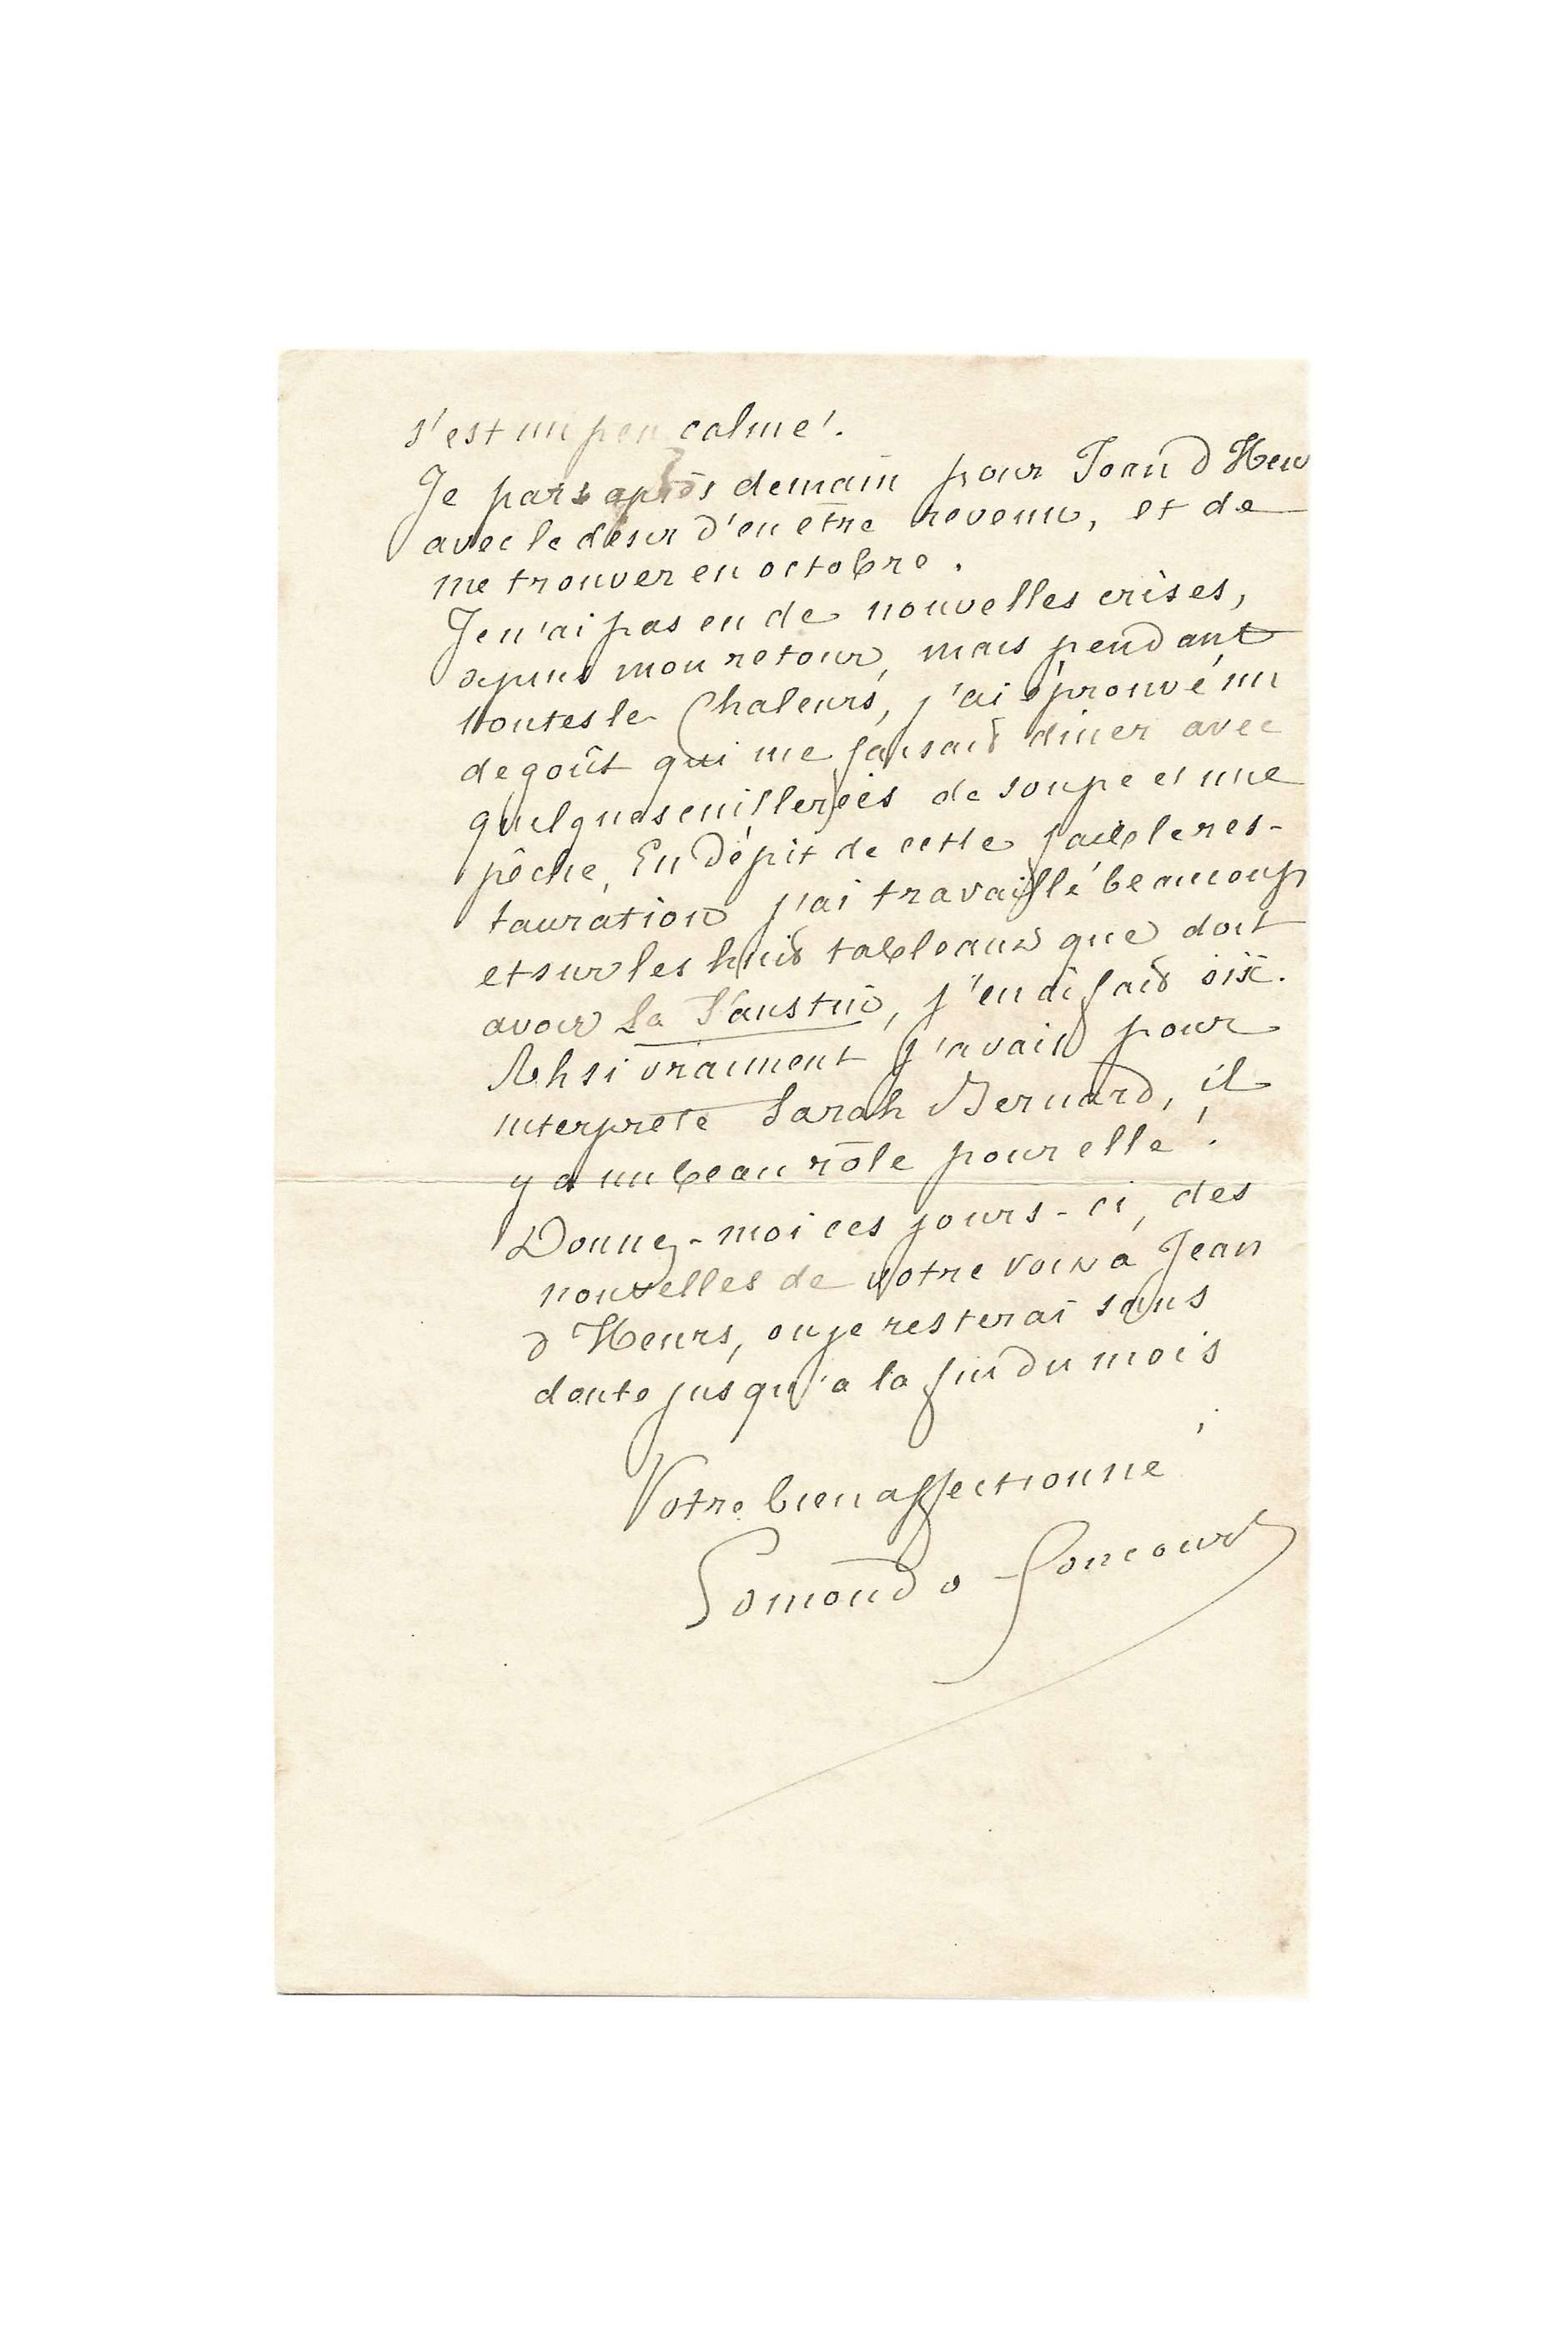 s'est un peu calmé.
Je pars après demain pour Jean d Heurs
avec le désir d'en être revenu, et de
me trouver en octobre.
Je n'ai pas eu de nouvelles crises,
depuis mon retour, mais pendant
toutes le Chaleurs, j'ai éprouvé un
degoût qui me faisait diner avec
quelques cuillerées de soupe et une
pêche. En dépit de cette faible res-
tauration j'ai travaillé beaucoup
et sur les huit tableaux que doit
avoir La Faustin, j'en ai fait six.
Ah si vraiment j'avais pour
interprete Sarah Bernard, il
y a un beau rôle pour elle !
Donnez-moi ces jours-ci, des
nouvelles de votre voix à Jean
d Heurs, ou je resterai sans
doute jusqu'a la fin du mois
Votre bien affectionné
Edmond de Goncourt